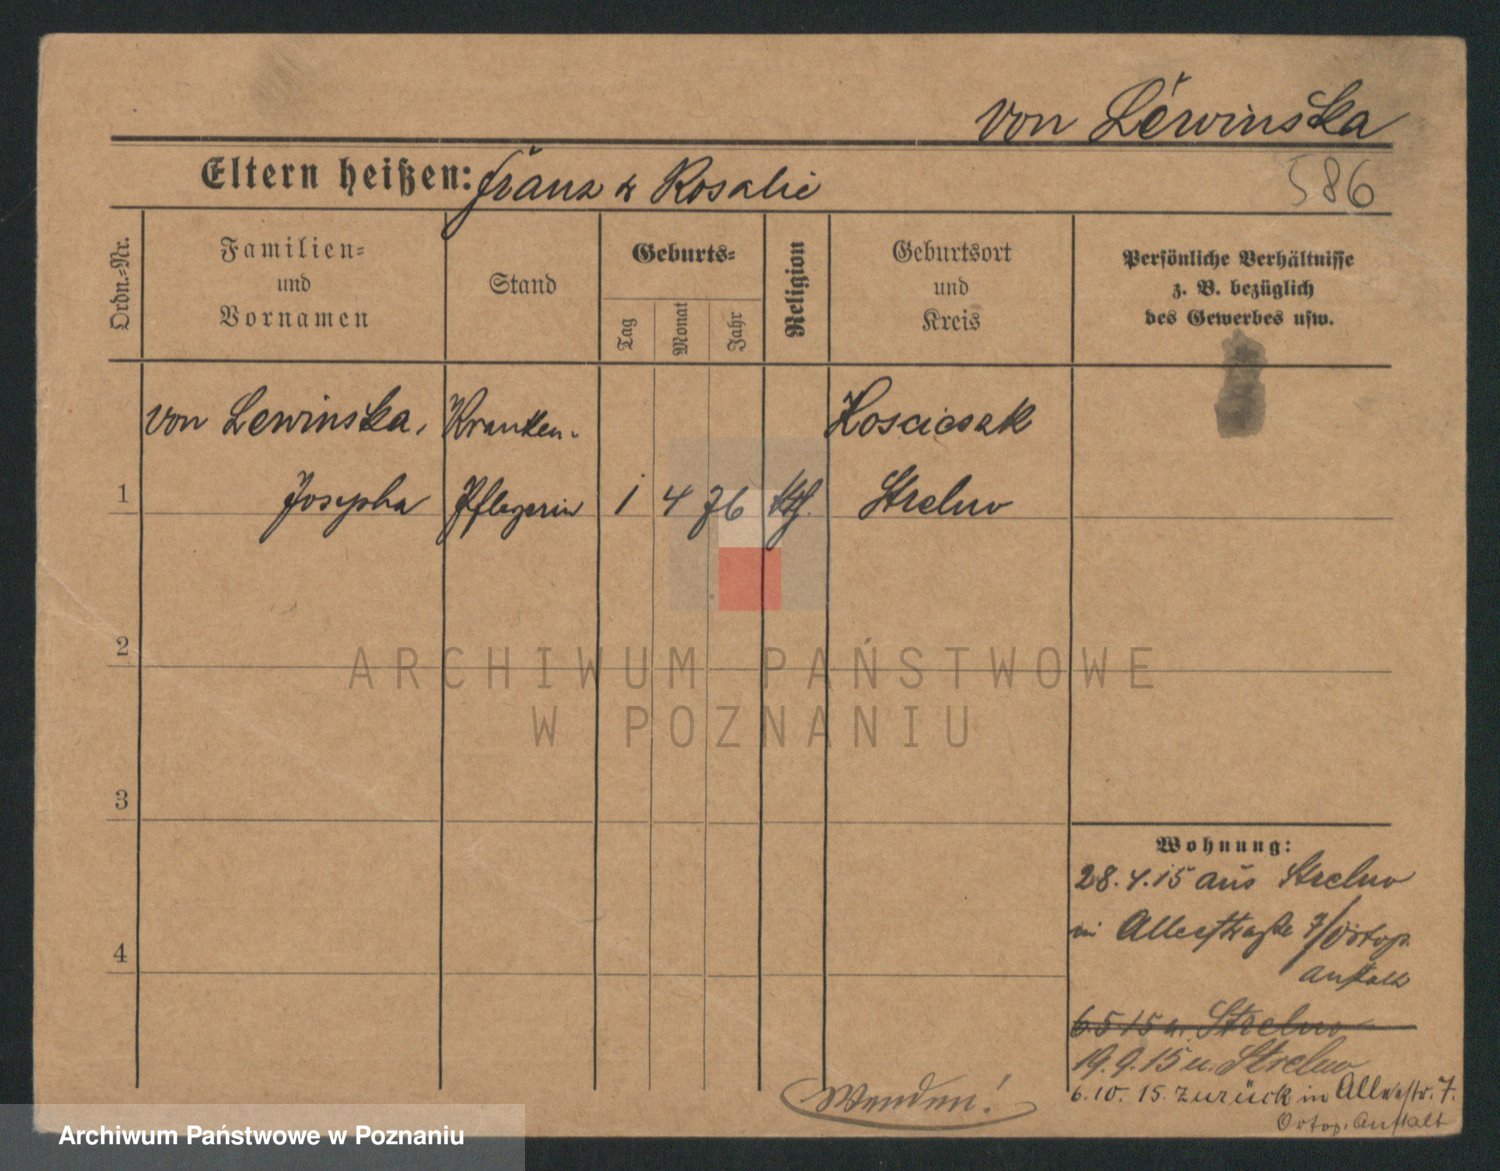 von Lewinska
586
Eltern heißen: Franz u Rosalie
Ordn.-Nr.
Familien-
und
Vornamen
Stand
Geburts-
Tag
Monat
Jahr
Religion
Geburtsort
und
Kreis
Persönliche Verhältnisse
z. B. bezüglich
des Gewerbes usw.
von Lewinska, Kranken- Kosciesek
1 Josepha Pflegerin 1 4 76 kth. Strelno
2
ARCHIWUM PAŃSTWOWE
W POZNANIU
3
4
Wohnung:
28.4.15 aus Strelno
in Alleestraße 7/Ortop.
Anstalt
6.5.15 n. Strelno
19.9.15 n. Strelno
6.10.15. zurück in Alleestr. 7.
Ortop. Anstalt
Wenden!
Archiwum Państwowe w Poznaniu